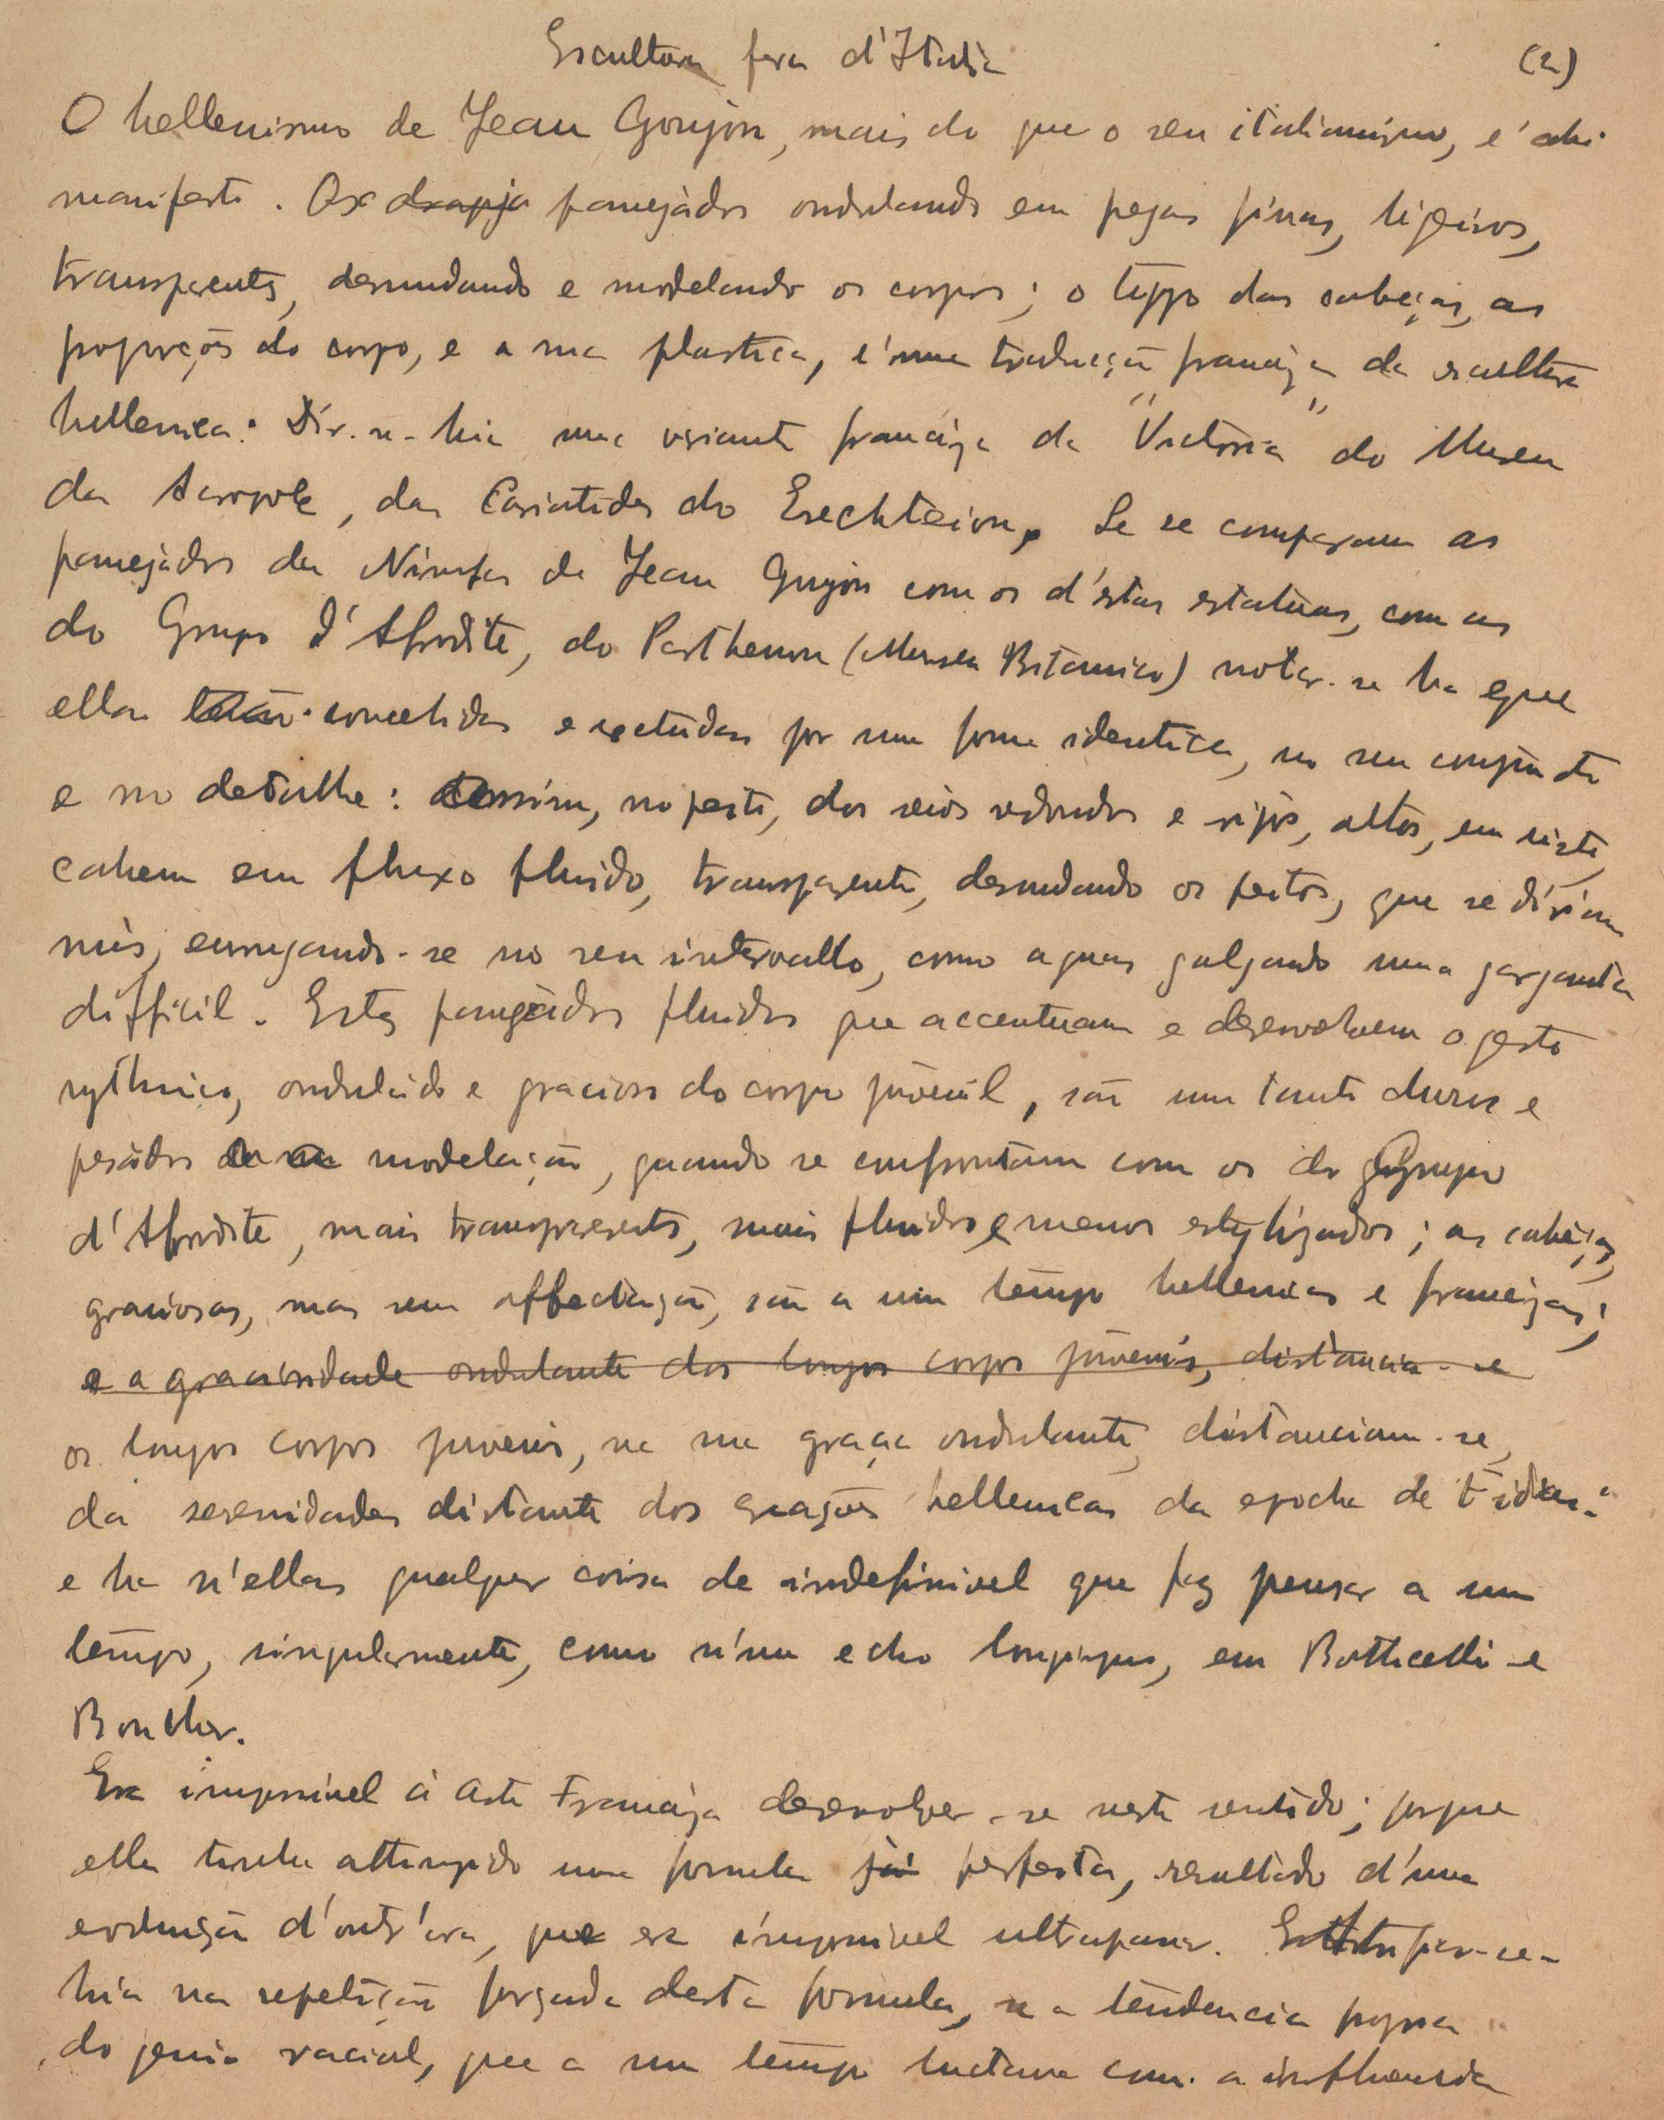 Escultura fora d'Italia (2)
O hellenismo de Jean Goujon, mais do que o seu italianismo, é ahi
manifesto. Os drapja panejádos ondulando em pregas finas, ligeiros,
transparentes, desnudando e modelando os corpos; o typpo das cabeças, as
proporções do corpo, e a sua plastica, é uma traducção francêza da escultura
hellenica. Dir-se-hia uma variante francêza da "Victoria" do Museu
da Acropole, das Cariatides do Erechteion. Se se comparam os
panejádos das Ninfas de Jean Goujon com os d'estas estatuas, com as
do Grupo d'Afrodite, do Parthenon (Museu Britanico) notar-se ha que
ellas concebidas e executadas por uma forma identica, no seu conjuncto
e no detalhe: assim, no peito, dos seios redondos e rijos, altos, em riste,
cahem em fluxo fluido, transparente, desnudando os peitos, que se diriam
nús, enrugando-se no seu intervallo, como aguas galgando uma garganta
difficil. Estes panejádos fluidos que accentuam e desenvolvem o gesto
rythmico, onduládo e gracioso do corpo juvenil, são um tanto duros e
pesádos de modelação, quando se confrontam com os do Grupo
d'Afrodite, mais transparentes, mais fluidos e menos estylizados; as cabêças,
graciosas, mas sem affectação, são a um tempo hellenicas e francêzas;
e a graciosidade ondulante dos longos corpos juvenis, distancia-se
os longos corpos juvenis, na sua graça ondulante, distanciam-se,
da serenidade distante das creações hellenicas da epocha de Fidias:
e ha n'ellas qualquer coisa de indefinivel que faz pensar a um
tempo, singularmente, como n'um echo longinquo, em Botticelli e
Boucher.
Era impossivel á Arte Francêza desenvolver-se neste sentido; porque
ella tinha attingido uma formula já perfeita, resultado d'uma
evolução d'outr'ora, que era impossivel ultrapassar. -se-
hia na repetição forçada desta formula, se a tendencia propria
do genio racial, que a um tempo luctava com a influencia